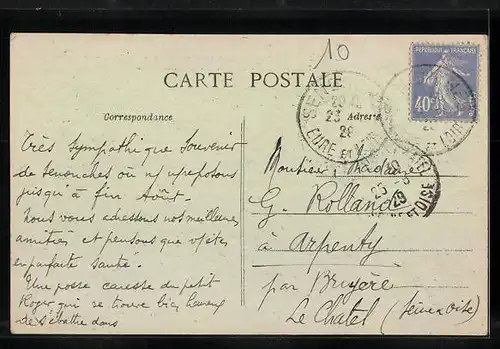 10
CARTE POSTALE
REPUBLIQUE FRANÇAISE
40c
SEN
23
28
EURE ET
Correspondance
Adresse
Très sympathique souvenir
de Senonches où ns ns reposons
jusqu'à fin Août.
Nous vous adressons nos meilleures
amitiés et pensons que vs êtes
en parfaite santé.
Une grosse caresse du petit
Roger qui se trouve bien heureux
de s'ébattre dans
Monsieur, Madame
G. Rolland
à Arpenty
par Bruyère
Le Chatel (Seine & Oise)